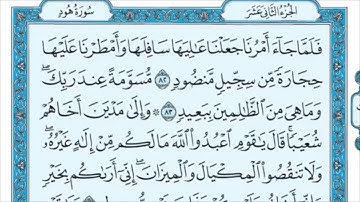 الجزء الثاني عشر
سورة هود
فَلَمَّا جَآءَ أَمْرُنَا جَعَلْنَا عَٰلِيَهَا سَافِلَهَا وَأَمْطَرْنَا عَلَيْهَا
حِجَارَةً مِّن سِجِّيلٍ مَّنضُودٍ ٨٢ مُّسَوَّمَةً عِندَ رَبِّكَۖ
وَمَا هِيَ مِنَ ٱلظَّٰلِمِينَ بِبَعِيدٍ ٨٣ ۞ وَإِلَىٰ مَدْيَنَ أَخَاهُمْ
شُعَيْبًاۚ قَالَ يَٰقَوْمِ ٱعْبُدُوا۟ ٱللَّهَ مَا لَكُم مِّنْ إِلَٰهٍ غَيْرُهُۥۖ
وَلَا تَنقُصُوا۟ ٱلْمِكْيَالَ وَٱلْمِيزَانَۖ إِنِّيٓ أَرَىٰكُم بِخَيْرٍ